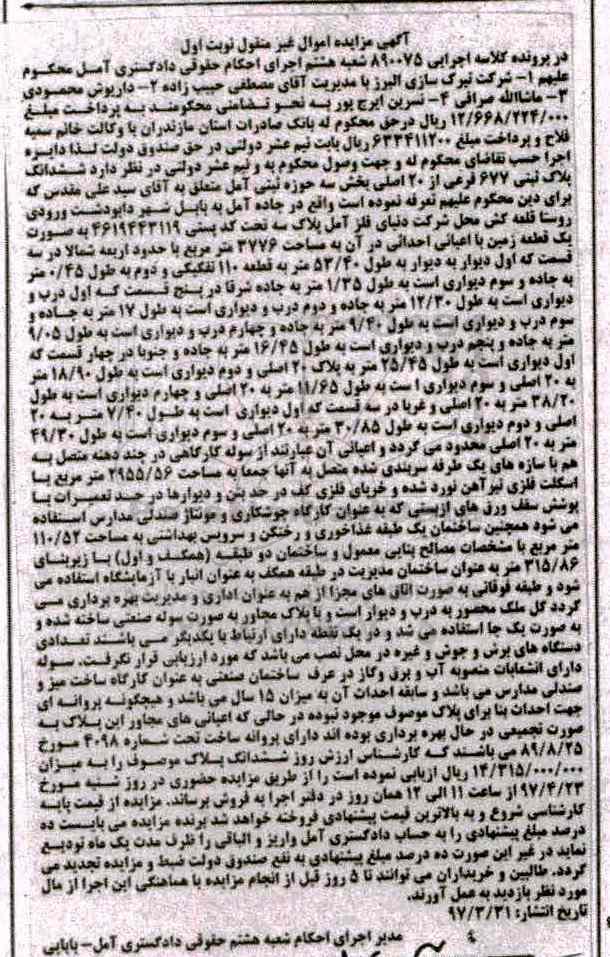 آگهی مزایده اموال غیر منقول نوبت اول
در پرونده کلاسه اجرایی ۸۹۰۰۷۵ شعبه هشتم اجرای احکام حقوقی دادگستری آمل محکوم
علیهم ۱- شرکت تیرک سازی البرز با مدیریت آقای مصطفی حبیب زاده ۲- داریوش محمودی
۳- ماشاالله صرافی ۴- نسرین ایرج پور به نحو تضامنی محکومند به پرداخت مبلغ
۱۲/۶۶۸/۲۲۴/۰۰۰ ریال درحق محکوم له بانک صادرات استان مازندران با وکالت خانم سمیه
فلاح و پرداخت مبلغ ۶۳۳۴۱۱۲۰۰ ریال بابت نیم عشر دولتی در حق صندوق دولت لذا دایره
اجرا حسب تقاضای محکوم له و جهت وصول محکوم به و نیم عشر دولتی در نظر دارد ششدانگ
پلاک ثبتی ۶۷۷ فرعی از ۲۰ اصلی بخش سه حوزه ثبتی آمل متعلق به آقای سید علی مقدس که
برای دین محکوم علیهم تعرفه نموده است واقع در جاده آمل به بابل شهر دابودشت ورودی
روستا قلعه کش محل شرکت دنیای فلز آمل پلاک سه تحت کد پستی ۴۶۱۹۴۴۳۱۱۹ به صورت
یک قطعه زمین با اعیانی احداثی در آن به مساحت ۳۷۷۶ متر مربع با حدود اربعه شمالا در سه
قسمت که اول دیوار به دیوار به طول ۵۳/۴۰ متر به قطعه ۱۱۰ تفکیکی و دوم به طول ۰/۴۵ متر
به جاده و سوم دیواری است به طول ۱/۳۵ متر به جاده شرقا در پنج قسمت که اول درب و
دیواری است به طول ۱۲/۳۰ متر به جاده و دوم درب و دیواری است به طول ۱۷ متر به جاده و
سوم درب و دیواری است به طول ۹/۴۰ متر به جاده و چهارم درب و دیواری است به طول ۹/۰۵
متر به جاده و پنجم درب و دیواری است به طول ۱۶/۴۵ متر به جاده و جنوبا در چهار قسمت که
اول دیواری است به طول ۲۵/۴۵ متر به پلاک ۲۰ اصلی و دوم دیواری است به طول ۱۸/۹۰ متر
به ۲۰ اصلی و سوم دیواری ا ست به طول ۱۱/۶۵ متر به ۲۰ اصلی و چهارم دیواری است به طول
۳۸/۲۰ متر به ۲۰ اصلی و غربا در سه قسمت که اول دیواری است به طول ۷/۴۰ متر به ۲۰
اصلی و دوم دیواری است به طول ۳۰/۸۵ متر به ۲۰ اصلی و سوم دیواری است به طول ۴۹/۳۰
متر به ۲۰ اصلی محدود می گردد و اعیانی آن عبارتند از سوله کارگاهی در چند دهنه متصل به
هم با سازه های یک طرفه سربندی شده متصل به آنها جمعا به مساحت ۲۹۵۵/۵۶ متر مربع با
اسکلت فلزی تیرآهن نورد شده و خرپای فلزی کف در حد بتن و دیوارها در حد تعمیرات با
پوشش سقف ورق های ازبستی که به عنوان کارگاه جوشکاری و مونتاژ صندلی مدارس استفاده
می شود همچنین ساختمان یک طبقه غذاخوری و رختکن و سرویس بهداشتی به مساحت ۱۱۰/۵۲
متر مربع با مشخصات مصالح بنایی معمول و ساختمان دو طبقه (همکف و اول) با زیربنای
۳۱۵/۸۶ متر به عنوان ساختمان مدیریت در طبقه همکف به عنوان انبار یا آزمایشگاه استفاده می
شود و طبقه فوقانی به صورت اتاق های مجزا از هم به عنوان اداری و مدیریت بهره برداری می
گردد کل ملک محصور به درب و دیوار است و با پلاک مجاور به صورت سوله صنعتی ساخته شده و
به صورت یک جا استفاده می شد و در یک نقطه دارای ارتباط با یکدیگر می باشند تعدادی
دستگاه های برش و جوش و غیره در محل نصب می باشد که مورد ارزیابی قرار نگرفت. سوله
دارای انشعابات منصوبه آب و برق وگاز در عرف ساختمان صنعتی به عنوان کارگاه ساخت میز و
صندلی مدارس می باشد و سابقه احداث آن به میزان ۱۵ سال می باشد و هیچگونه پروانه ای
جهت احداث بنا برای پلاک موصوف موجود نبوده در حالی که اعیانی های مجاور این پلاک به
صورت تجمیعی در حال بهره برداری بوده اند دارای پروانه ساخت تحت شماره ۴۰۹۸ مورخ
۸۹/۸/۲۵ می باشند که کارشناس ارزش روز ششدانگ پلاک موصوف را به میزان
۱۴/۳۱۵/۰۰۰/۰۰۰ ریال ازیابی نموده است را از طریق مزایده حضوری در روز شنبه مورخ
۹۷/۴/۲۳ از ساعت ۱۱ الی ۱۲ همان روز در دفتر اجرا به فروش برساند. مزایده از قیمت پایه
کارشناسی شروع و به بالاترین قیمت پیشنهادی فروخته خواهد شد برنده مزایده می بایست ده
درصد مبلغ پیشنهادی را به حساب دادگستری آمل واریز و الباقی را ظرف مدت یک ماه تودیع
نماید در غیر این صورت ده درصد مبلغ پیشنهادی به نفع صندوق دولت ضبط و مزایده تجدید می
گردد. طالبین و خریداران می توانند تا ۵ روز قبل از انجام مزایده با هماهنگی این اجرا از مال
مورد نظر بازدید به عمل آورند.
تاریخ انتشار: ۹۷/۳/۳۱
مدیر اجرای احکام شعبه هشتم حقوقی دادگستری آمل- بابایی